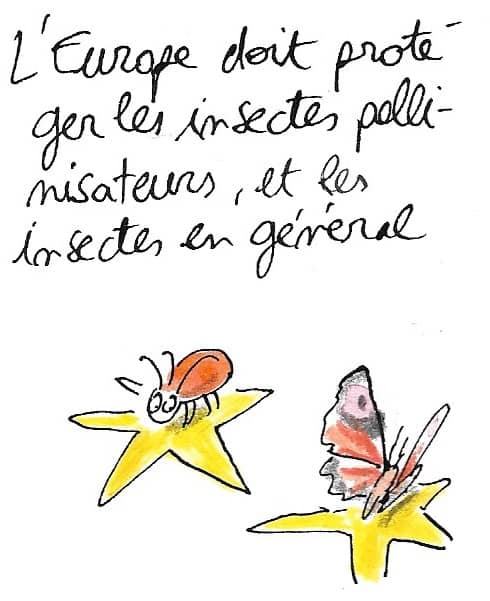 L'Europe doit proté-
ger les insectes polli-
nisateurs, et les
insectes en général